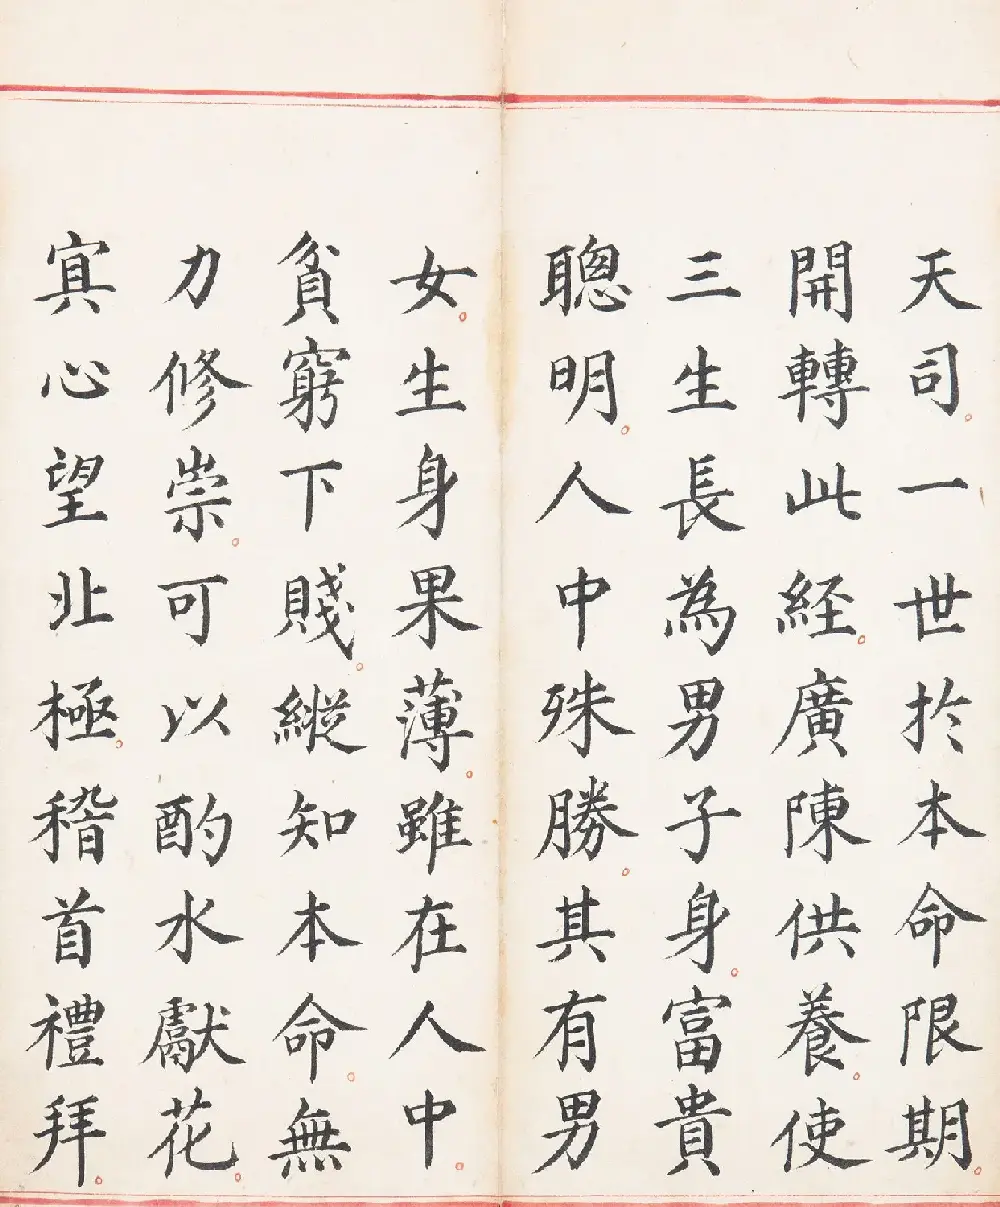 天司。一世於本命限期。
開轉此経。廣陳供養。使
三生長為男子身。富貴
聰明。人中殊勝。其有男
女。生身果薄。雖在人中。
貧窮下賤。縱知本命。無
力修崇。可以酌水獻花。
寘心望北極。稽首禮拜。